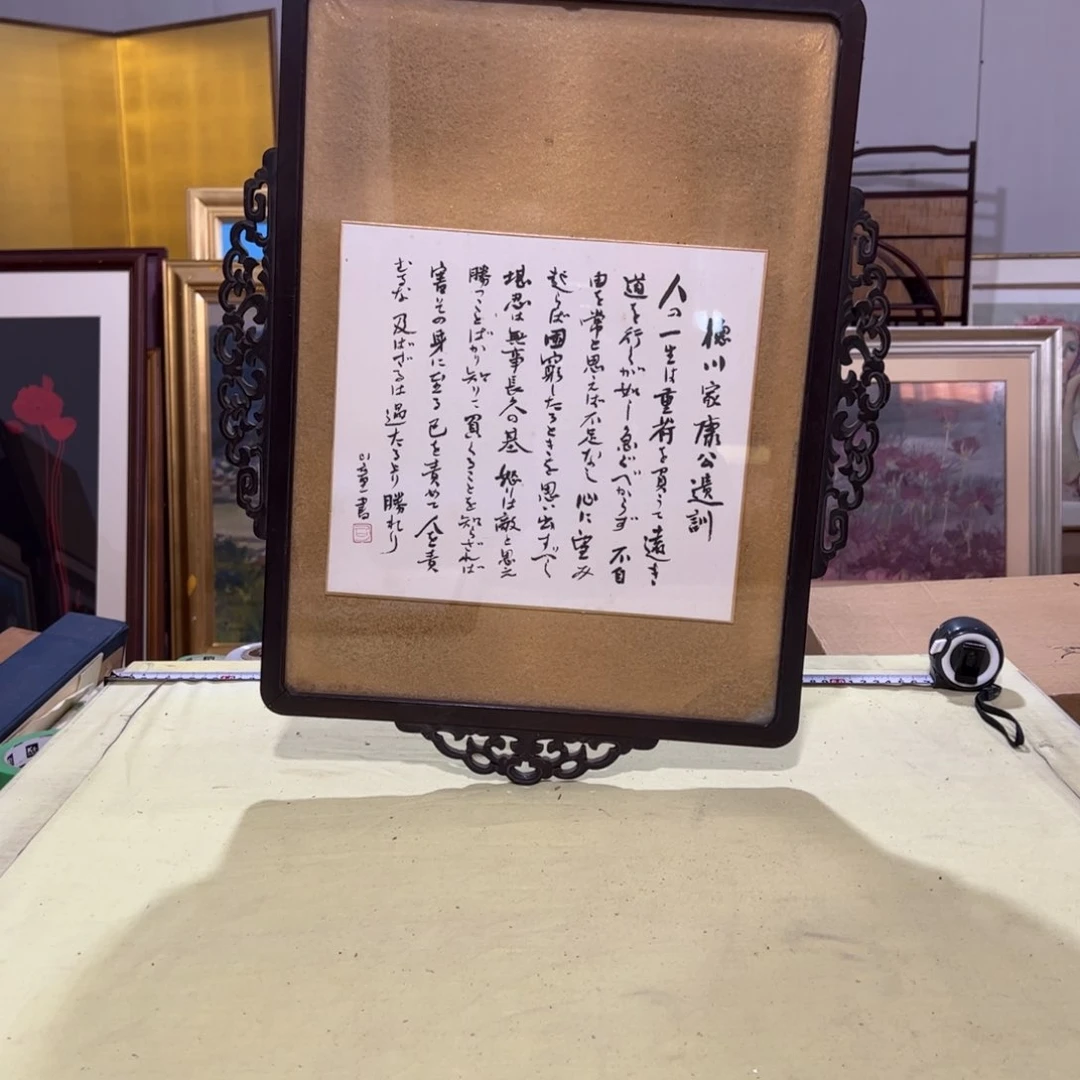 徳川家康公遺訓
人の一生は重荷を負うて遠き
道を行くが如し 急ぐべからず 不自
由を常と思えば不足なし 心に望み
起らば困窮したるときを思い出すべし
堪忍は無事長久の基 怒りは敵と思え
勝つことばかり知りて負くることを知らざれば
害その身に至る 己を責めて人を責
むるな 及ばざるは過たるより勝れり
書